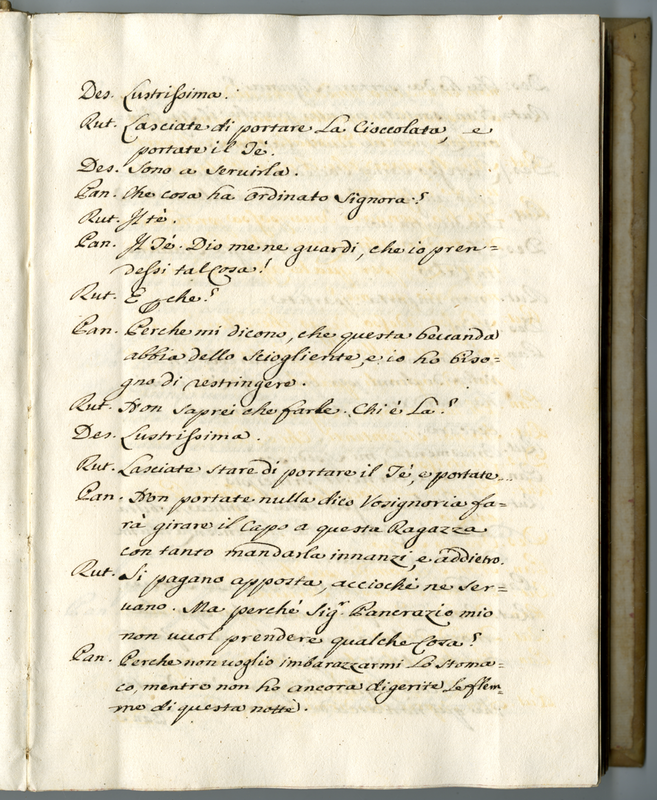 Des. Lustrissima.
Rut. Lasciate di portare La Cioccolata, e
portate il Tè.
Des. Sono a Servirla.
Pan. Che cosa ha ordinato Signora?
Rut. Il tè.
Pan. Il Tè. Dio me ne guardi, che io pren=
dessi tal Cosa!
Rut. E pche?
Pan. Perche mi dicono, che questa beccanda
abbia dello Sciogliente, e io ho biso=
gno di restringere.
Rut. Non Saprei che farle. Chi è Là?
Des. Lustrissima.
Rut. Lasciate stare di portare il Tè, e portate...
Pan. Non portate nulla dico Vosignoria fa=
rà girare il Capo a questa Ragazza
con tanto mandarla innanzi, e addietro.
Rut. Si pagano apposta, acciochè ne Ser=
vano. Ma perchè Sig.r Pancrazio mio
non vuol prendere qualche Cosa?
Pan. Perche non voglio imbarazzarmi Lo Stoma=
co, mentre non ho ancora digerite Le flem=
me di questa notte.